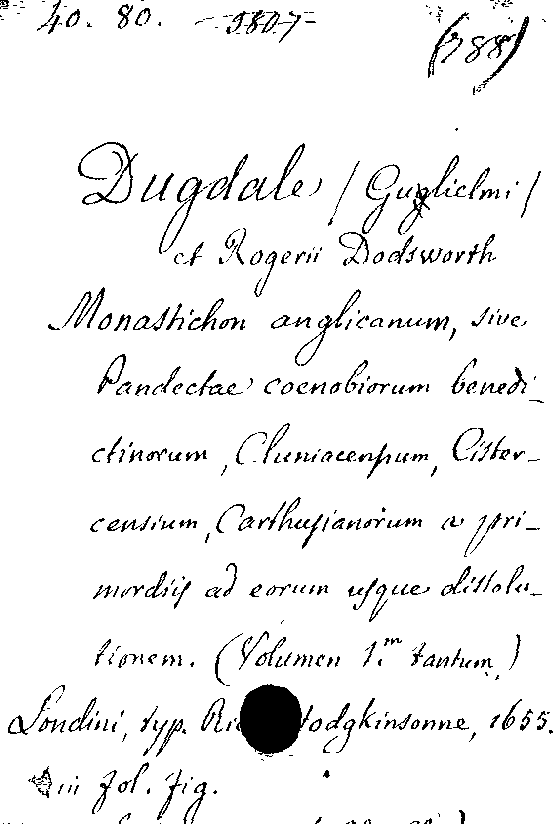 40. 80. 5807
(788)
Dugdale (Guglielmi)
et Rogerii Dodsworth
Monastichon anglicanum, sive
Pandectae coenobiorum benedi-
ctinorum, Cluniacensium, Cister-
censium, Carthusianorum a pri-
mordiis ad eorum usque dissolu-
tionem. (Volumen 1.m tantum.)
Londini, typ. Ric Hodgkinsonne, 1655.
in fol. fig.